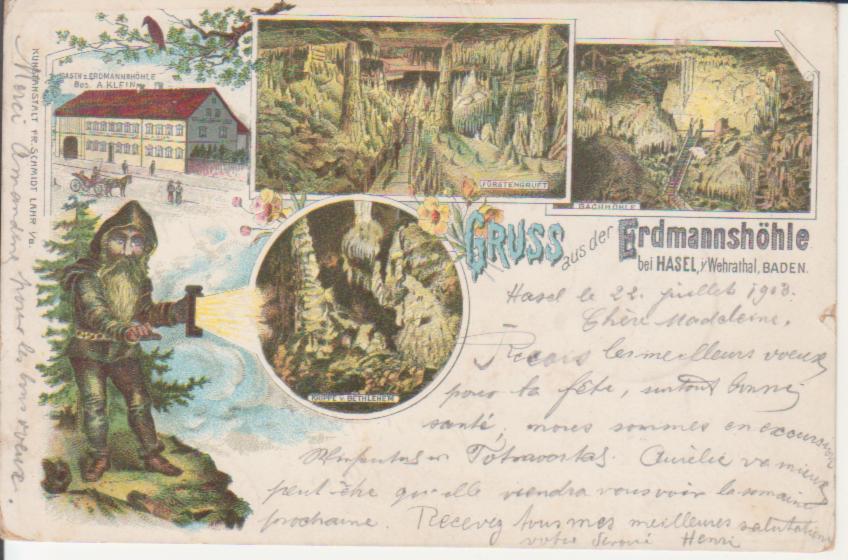 KUNSTANSTALT FR. SCHMIDT LAHR i/B.
GASTH. z. ERDMANNSHÖHLE
Bes. A. KLEIN
FÜRSTENGRUFT
BACHHÖHLE
KRIPPE v. BETHLEHEM
GRUSS aus der Erdmannshöhle
bei HASEL, i/Wehrathal, BADEN.
Hasel le 22. juillet 1903.
Chère Madeleine,
Reçois les meilleurs voeux
pour ta fête, surtout bonne
santé, nous sommes en excursion
Aurélie va mieux
peut être qu'elle viendra vous voir la semaine
prochaine. Recevez tous mes meilleures salutations
votre Henri
Merci Amandine pour les bons voeux.